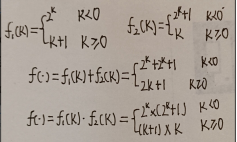 f₁(K)={2^K K<0 f₂(K)={2^K+1 K<0
K+1 K≥0 K K≥0
f(·)=f₁(K)+f₂(K)={2^K+2^K+1 K<0
2K+1 K≥0
f(·)=f₁(K)·f₂(K)={2^K×(2^K+1) K<0
(K+1)×K K≥0